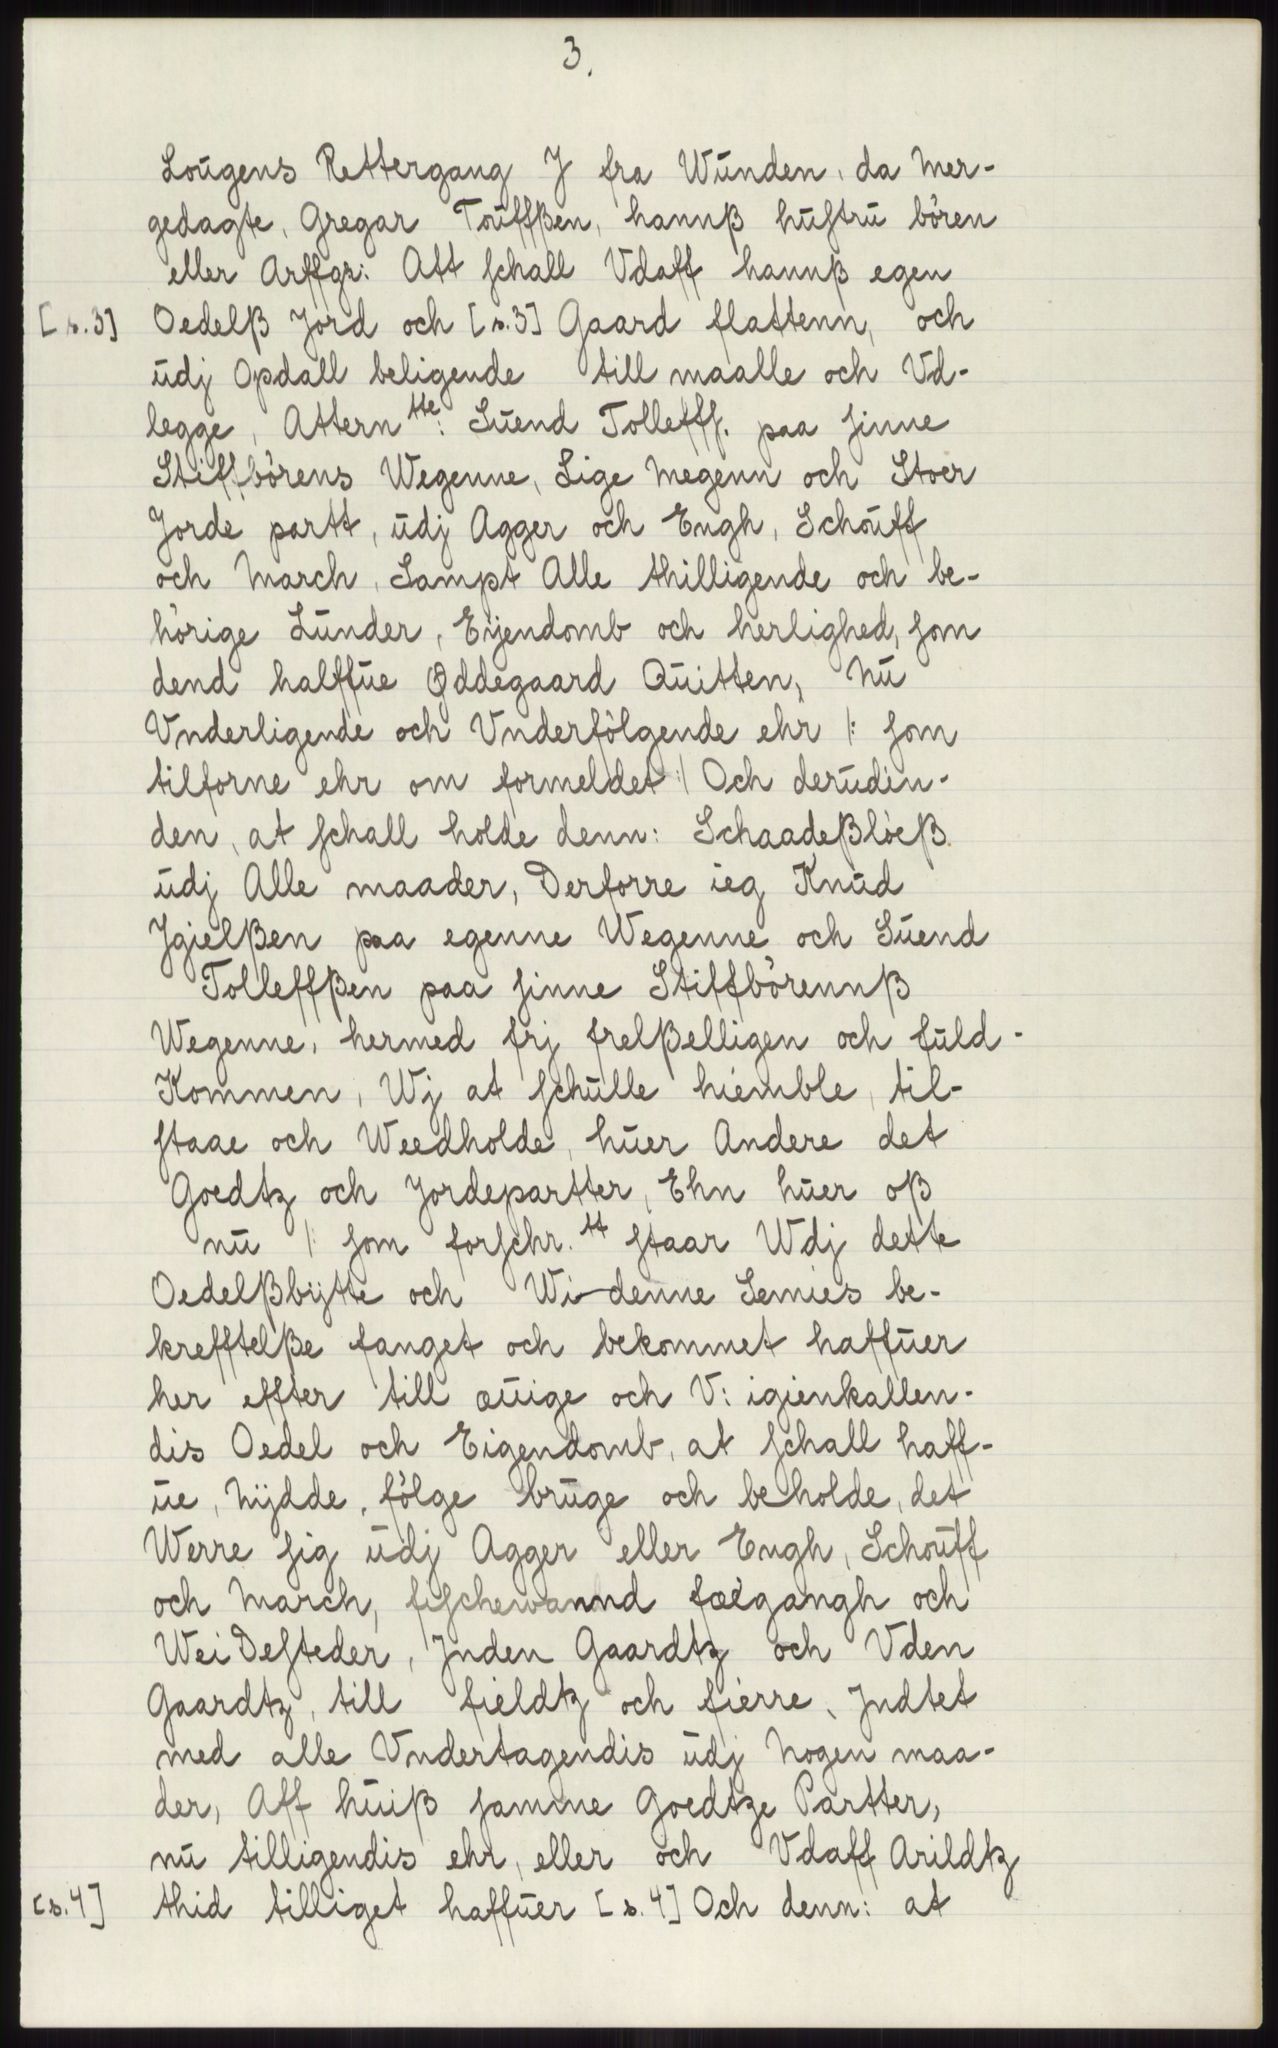 3.
Lougens Rettergang J fra Wunden, da Mer-
gedagte, Gregar Touffßen, hannß hustru bören
eller Arffgr: Att schall Vdaff hannß egen
[s.3] Oedelß Jord och [s.3] Gaard flattenn, och
udj Opdall beligende till maalle och Vd-
legge, Attern tte: Suend Tolleffs. paa sinne
Stiffbörens Wegenne, Lige megenn och Stoer
Jorde partt, udj Agger och Engh, Schouff
och March, Sampt Alle thilligende och be-
hörige Lunder, Eijendomb och herlighed, som
dend halffue Øddegaard Quitten, Nu
Vnderligende och Vnderfölgende ehr /: som
tilforne ehr om formeldet :/ Och derudin-
den, at schall holde denn: Schaadeßlöeß
udj Alle maader, Derforre ieg Knud
Jgielßen paa egenne Wegenne och Suend
Tolleffßen paa sinne Stiffbörennß
Wegenne, hermed frj frelßelligen och fuld-
Kommen, Wj at schulle hiemble, til-
staae och Weedholde, huer Andere det
Goedtz och Jordepartter, Ehn huer oß
nu /: som forschr. tt staar Wdj dette
Oedelßbytte och Wi denne Semies be-
krefftelße fanget och bekommet haffuer
her effter till æuige och V: igienkallen-
dis Oedel och Eigendomb, at schall haff-
ue, Nijdde, fölge bruge och beholde, det
Werre sig udj Agger eller Engh, Schouff
och March, fischewannd fæigangh och
WeiDesteder, Jnden Gaardtz och Vden
Gaardtz, till fieldtz och fierre, Jndtet
med alle Vndertagendis udj Nogen maa-
der, Aff huiß samme Goedtze Partter,
nu tilligendis ehr, eller och Vdaff Arildtz
[s.4] thid tilliget haffuer [s.4] Och denn: at